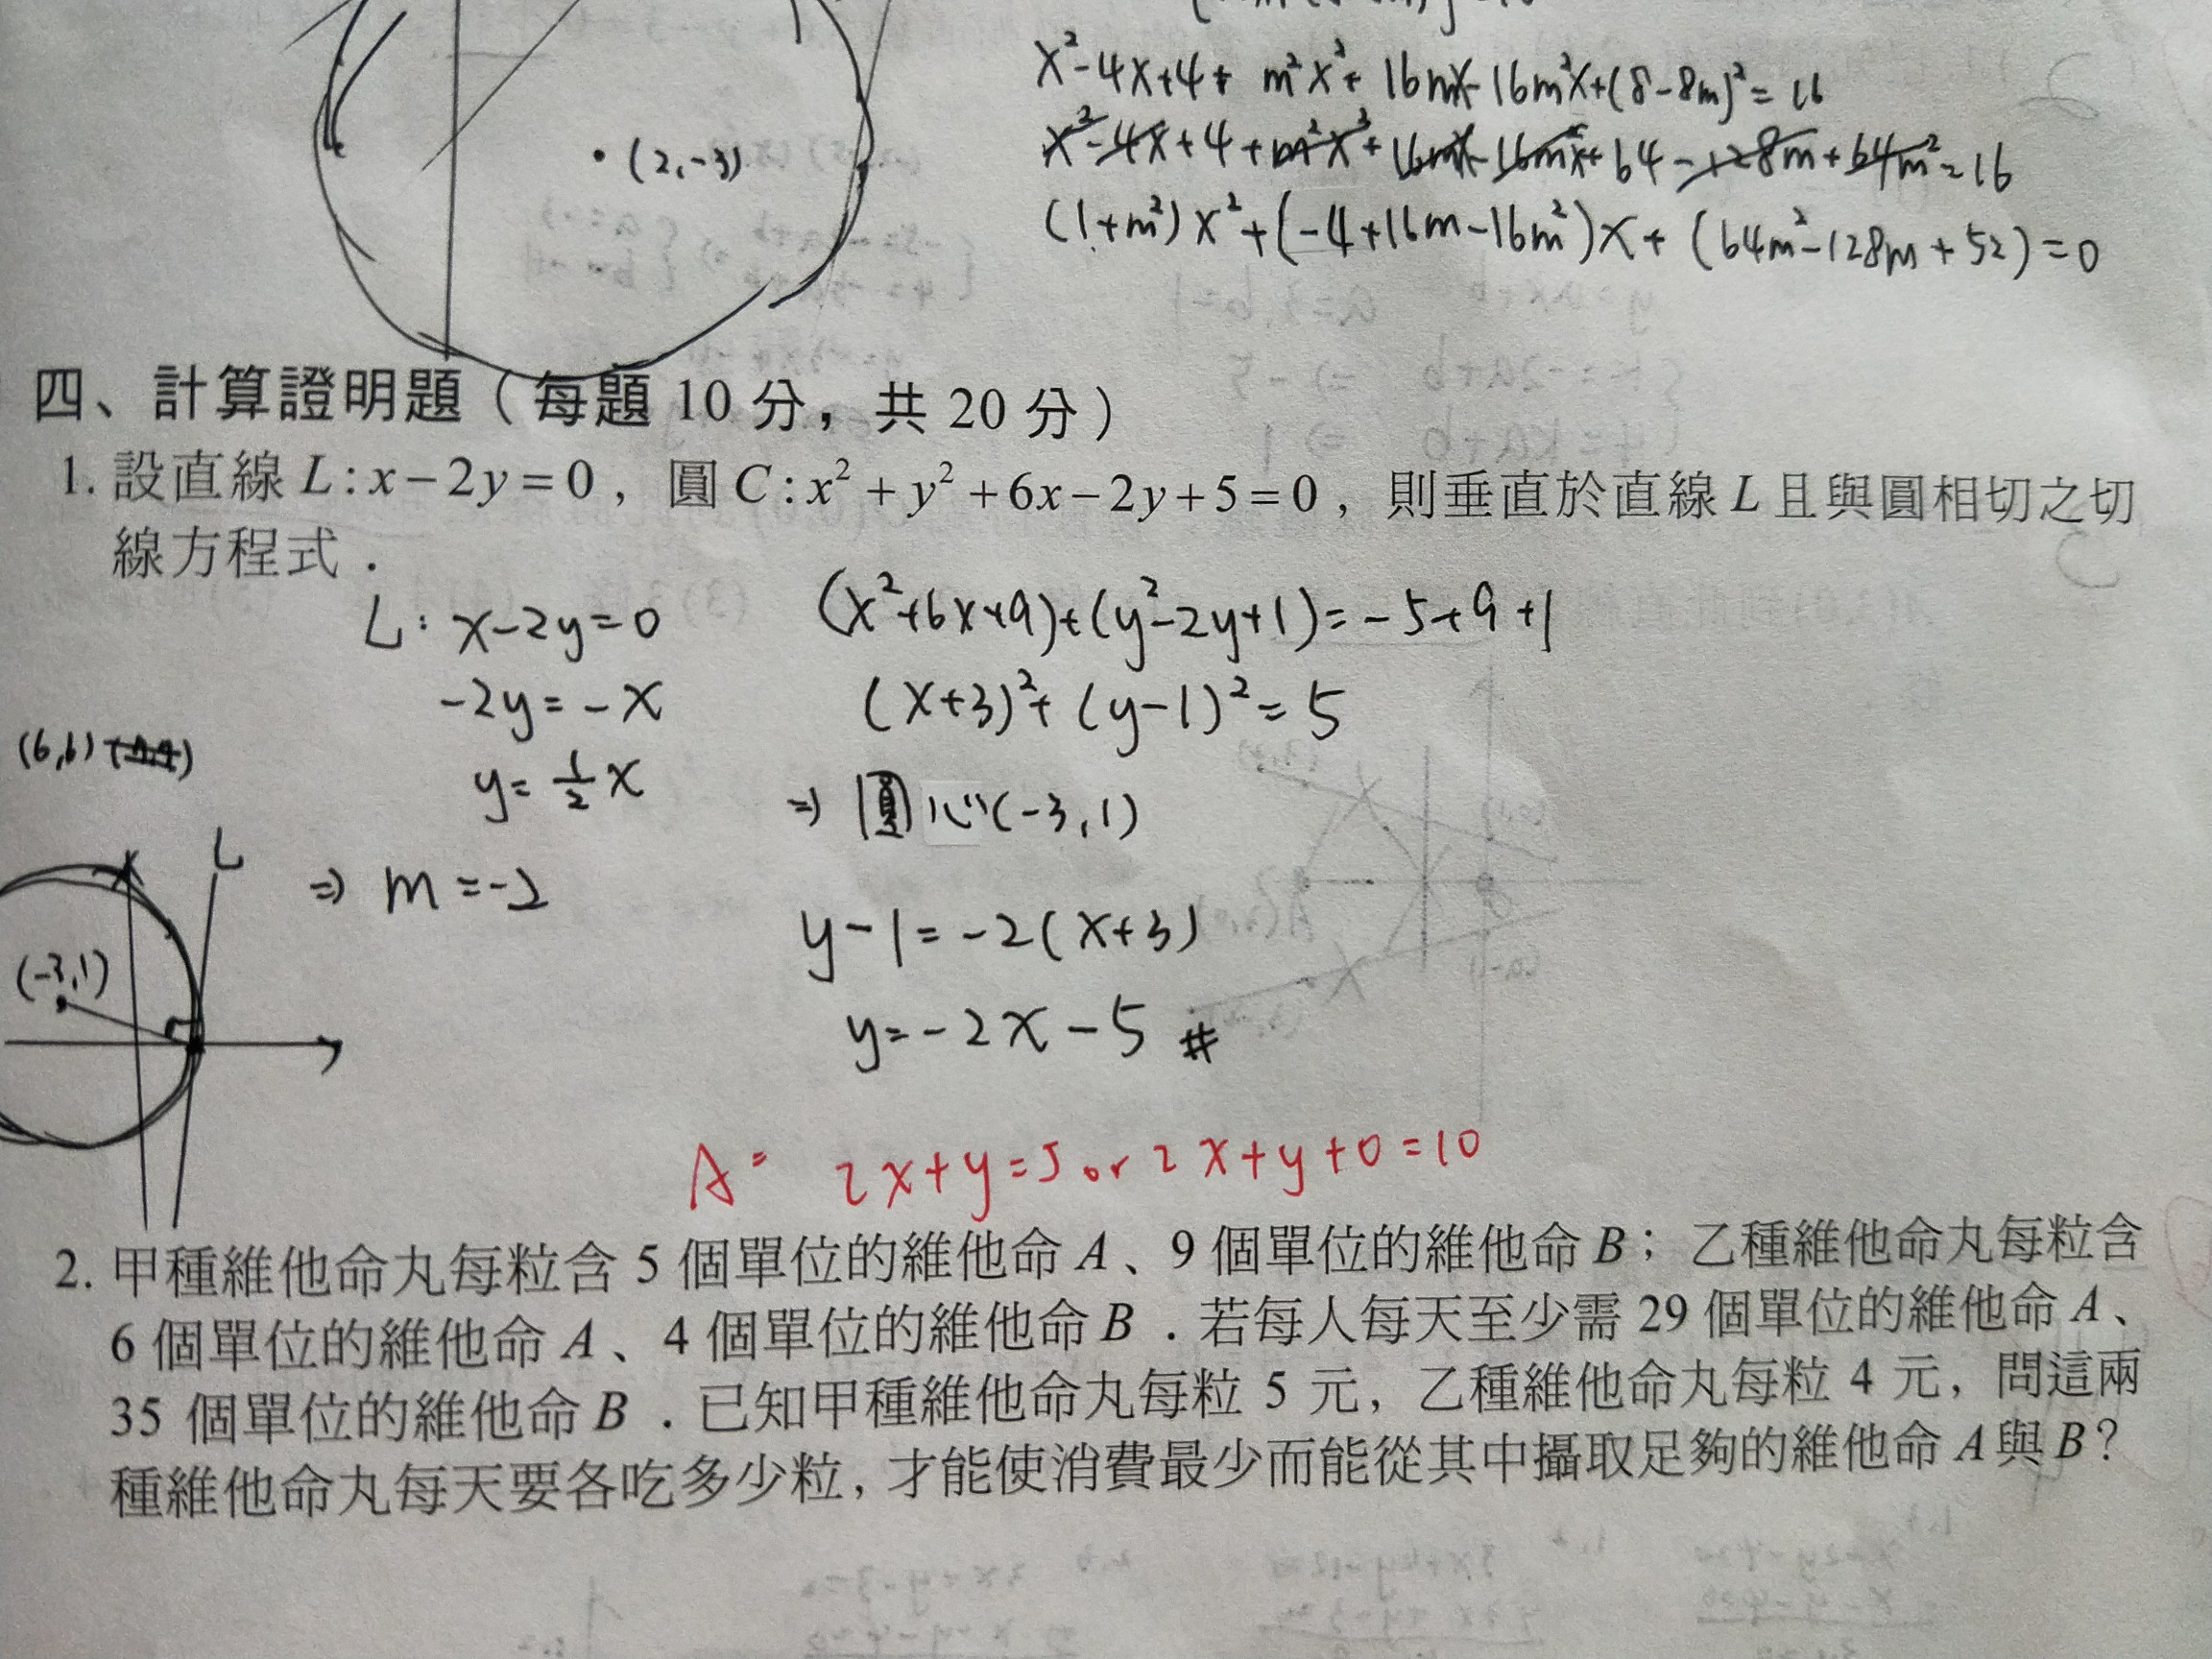 x²-4x+4+ m²x²+ 16mx-16m²x+(8-8m)²=16
x²-4x+4+m²x²+16mx-16m²x+64-128m+64m²=16
• (2,-3)
(1+m²)x²+(-4+16m-16m²)x+(64m²-128m+52)=0
四、計算證明題（每題 10 分，共 20 分）
1. 設直線 L:x-2y=0，圓 C:x²+y²+6x-2y+5=0，則垂直於直線 L 且與圓相切之切
線方程式．
L: x-2y=0
-2y=-x
y=½x
⇒ m=-2
(x²+6x+9)+(y²-2y+1)=-5+9+1
(x+3)²+(y-1)²=5
⇒ 圓心(-3,1)
y-1=-2(x+3)
y=-2x-5 #
(6,6)
L
(-3,1)
A: 2x+y=5 or 2x+y+0=10
2. 甲種維他命丸每粒含 5 個單位的維他命 A、9 個單位的維他命 B；乙種維他命丸每粒含
6 個單位的維他命 A、4 個單位的維他命 B．若每人每天至少需 29 個單位的維他命 A、
35 個單位的維他命 B．已知甲種維他命丸每粒 5 元，乙種維他命丸每粒 4 元，問這兩
種維他命丸每天要各吃多少粒，才能使消費最少而能從其中攝取足夠的維他命 A 與 B？